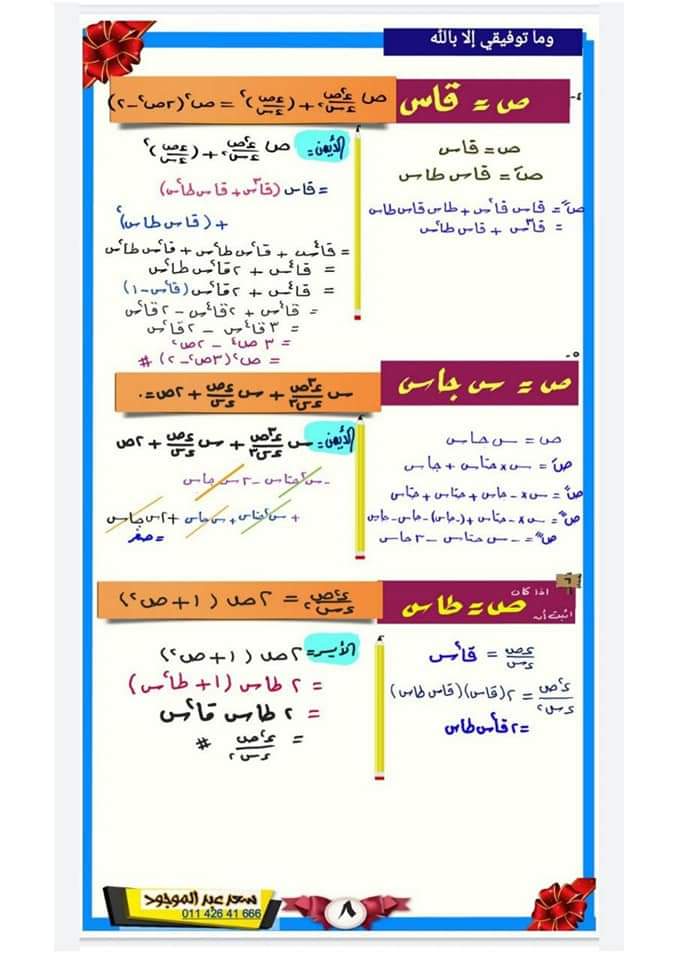 وما توفيقي إلا بالله
٤-
ص = قاس
ص ء٢ص/ءس٢ + (ءص/ءس)٢ = ص٢(٣ص٢-٢)
ص = قاس
صَ = قاس طاس
صً = قاس قا٢س + طاس قاس طاس
= قا٣س + قاس طا٢س
الأيمن = ص ء٢ص/ءس٢ + (ءص/ءس)٢
= قاس (قا٣س + قاس طا٢س)
+ (قاس طاس)٢
= قا٤س + قا٢س طا٢س + قا٢س طا٢س
= قا٤س + ٢قا٢س طا٢س
= قا٤س + ٢قا٢س (قا٢س-١)
= قا٤س + ٢قا٤س - ٢قا٢س
= ٣قا٤س - ٢قا٢س
= ٣ص٤ - ٢ص٢
= ص٢(٣ص٢-٢) #
٥-
ص = س جاس
س ء٣ص/ءس٣ + س ءص/ءس + ٢ص = ٠
ص = س جاس
صَ = س× جتاس + جاس
صً = س× -جاس + جتاس + جتاس
ص‴ = س× -جتاس + (-جاس) -جاس -جاس
ص‴ = -س جتاس -٣جاس
الأيمن = س ء٣ص/ءس٣ + س ءص/ءس + ٢ص
-س٢جتاس -٣س جاس
+ س٢جتاس + س جاس + ٢س جاس
= صفر
٦
اذا كان
ص = طاس
اثبت أن
ء٢ص/ءس٢ = ٢ص (١+ص٢)
ءص/ءس = قا٢س
ء٢ص/ءس٢ = ٢(قاس)(قاس طاس)
= ٢قا٢س طاس
الأيسر = ٢ص (١+ص٢)
= ٢ طاس (١+ طا٢س)
= ٢ طاس قا٢س
= ء٢ص/ءس٢ #
سعد عبد الموجود
011 426 41 666
٨